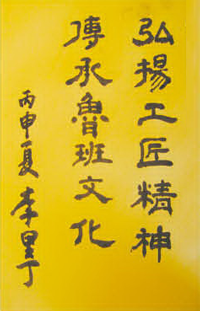 弘揚工匠精神
傳承魯班文化
丙申夏 李里丁